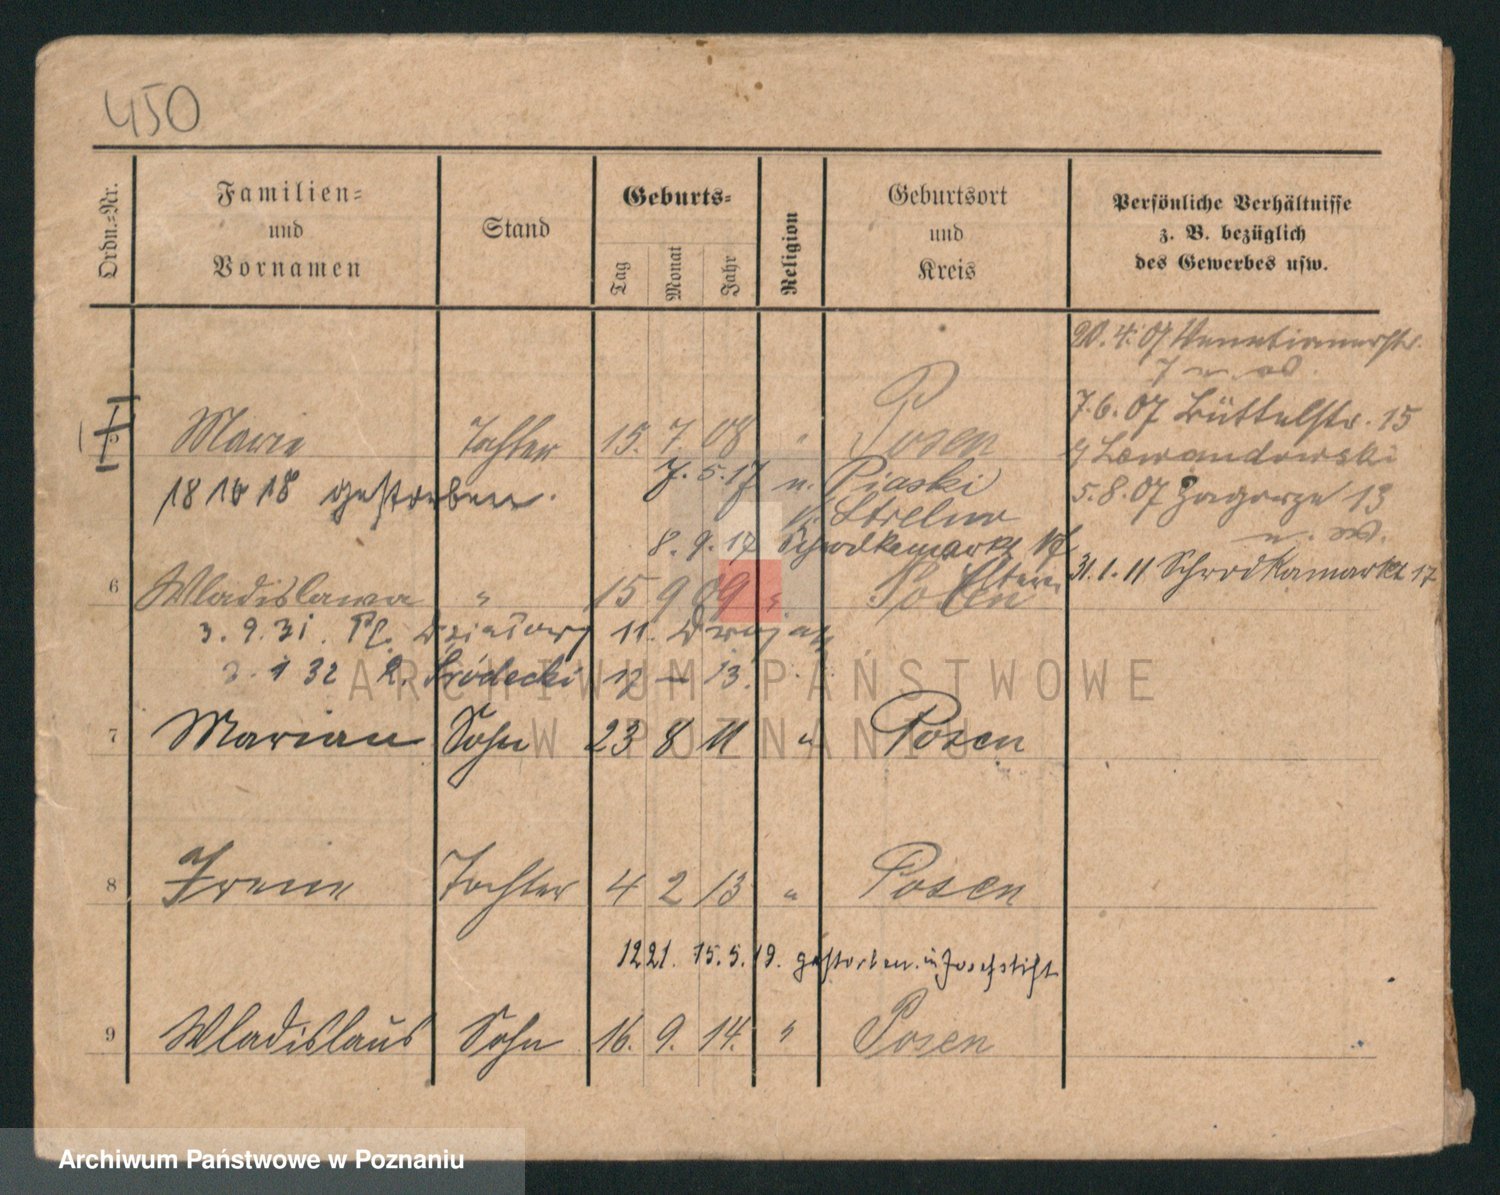 450
Ordn.=Nr.
Familien=
und
Vornamen
Stand
Geburts=
Tag
Monat
Jahr
Religion
Geburtsort
und
Kreis
Persönliche Verhältnisse
z. B. bezüglich
des Gewerbes usw.
20. 4. 07 Venetianerstr.
7
7. 6. 07 Büttelstr. 15
Lewandowski
5. 8. 07 Zagorze 13
31. 1. 11 Schrodkamarkt 17
5 Marie Tochter 15. 7 08 " Posen
18 10 18 gestorben.
7. 5. 17 n. Piaski
Strelno
8. 9. 17 Schrodkamarkt 17
Eltern
6 Wladislawa " 15 9 09 " Posen
3. 9. 31. Pl. Działowy 11.
3. 1 32 R. Śródecki 17 — 13.
7 Marian Sohn 23 8 11 " Posen
8 Irene Tochter 4 2 13 " Posen
1221. 15. 5. 19. gestorben in Josefstift
9 Wladislaus Sohn 16. 9. 14. " Posen
ARCHIWUM PAŃSTWOWE
W POZNANIU
Archiwum Państwowe w Poznaniu